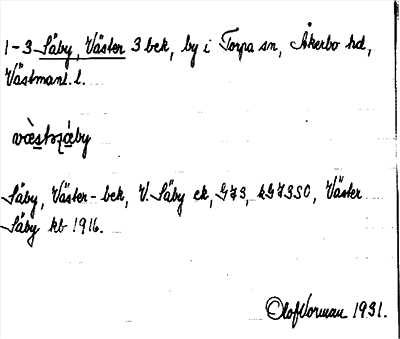 1-3 Säby, Väster 3 bek, by i Torpa sn, Åkerbo hd,
Västmanl. l.
Säby, Väster- bek, V. Säby ek, GJ3, kGJ3SO, Väster
Säby kb 1916.
Olof Norman 1931.